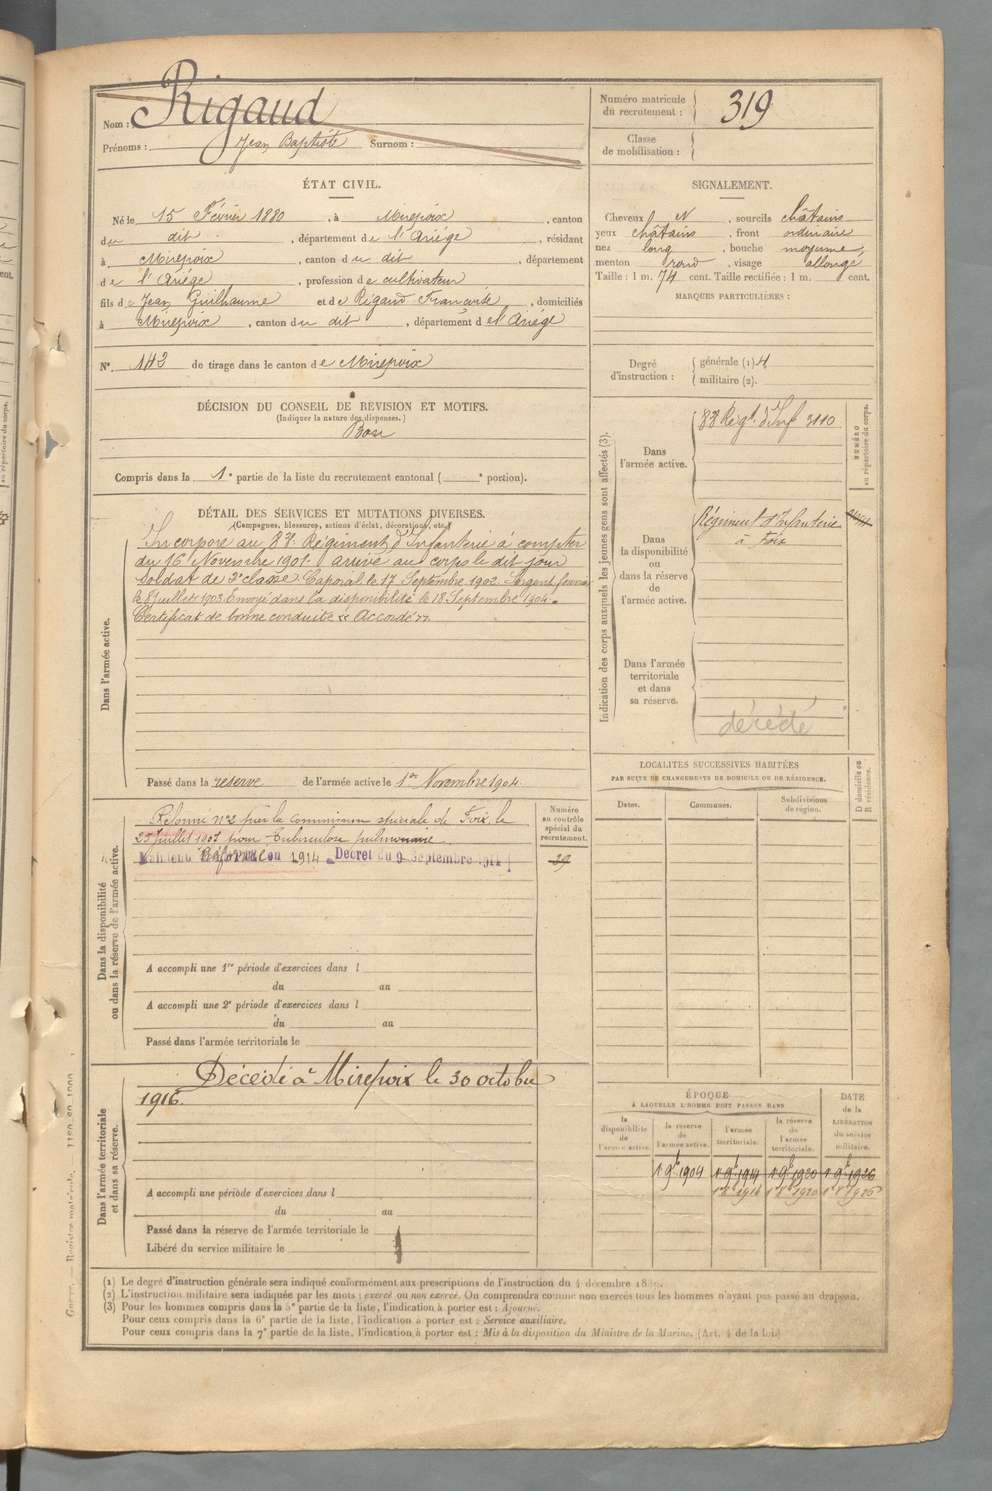 Rigaud
Nom :
Prénoms : Jean Baptiste Surnom :
Numéro matricule du recrutement : 319
Classe de mobilisation :
ÉTAT CIVIL.
Né le 15 Février 1880, à Mirepoix, canton
du dit, département de l'Ariége, résidant
à Mirepoix, canton du dit, département
de l'Ariége, profession de cultivateur
fils de Jean Guilhaume et de Rigaud Francoise, domiciliés
à Mirepoix, canton du dit, département de l'Ariége
N° 143 de tirage dans le canton de Mirepoix
SIGNALEMENT.
Cheveux N, sourcils châtains
yeux châtains, front ordinaire
nez long, bouche moyenne,
menton rond, visage allongé
Taille : 1 m. 74 cent. Taille rectifiée : 1 m. cent.
MARQUES PARTICULIÈRES :
Degré d'instruction : générale (1)
militaire (2).
DÉCISION DU CONSEIL DE REVISION ET MOTIFS.
(Indiquer la nature des dispenses.)
Bon
Compris dans la 1e partie de la liste du recrutement cantonal ( e portion).
DÉTAIL DES SERVICES ET MUTATIONS DIVERSES.
(Campagnes, blessures, actions d'éclat, décorations, etc.)
Dans l'armée active.
Incorporé au 83e Régiment d'Infanterie à compter
du 16 Novembre 1901 arrivé au corps le dit jour
Soldat de 2e classe. Caporal le 17 Septembre 1902. Sergent fourrier
le 8 juillet 1903 Envoyé dans la disponibilité le 18 Septembre 1904.
Certificat de bonne conduite « Accordé ».
Passé dans la réserve de l'armée active le 1er Novembre 1904.
Indication des corps auxquels les jeunes gens sont affectés (3).
NUMÉRO au répertoire du corps.
Dans l'armée active.
83e Régt d'Inf 3110
Dans la disponibilité ou dans la réserve de l'armée active.
Régiment d'Infanterie
à Foix
Dans l'armée territoriale et dans sa réserve.
décédé
LOCALITÉS SUCCESSIVES HABITÉES
PAR SUITE DE CHANGEMENTS DE DOMICILE OU DE RÉSIDENCE.
Dates. Communes. Subdivisions de région.
D domicile ou R résidence.
Dans la disponibilité ou dans la réserve de l'armée active.
Numéro au contrôle spécial du recrutement.
Réformé n°2 par la commission spéciale de Foix, le
25 juillet 1907 pour tuberculose pulmonaire
Maintenu Réformé en 1914 Décret du 9 Septembre 1914
29
A accompli une 1re période d'exercices dans l
du au
A accompli une 2e période d'exercices dans l
du au
Passé dans l'armée territoriale le
Dans l'armée territoriale et dans sa réserve.
Décédé à Mirepoix le 30 octobre
1916.
A accompli une période d'exercices dans l
du au
Passé dans la réserve de l'armée territoriale le
Libéré du service militaire le
ÉPOQUE
À LAQUELLE L'HOMME DOIT PASSER DANS
DATE de la LIBÉRATION du service militaire.
la disponibilité de l'armée active. la réserve de l'armée active. l'armée territoriale. la réserve de l'armée territoriale.
1 9bre 1904 1 9bre 1914 1 9bre 1920 1 9bre 1926
(1) Le degré d'instruction générale sera indiqué conformément aux prescriptions de l'instruction du 4 décembre
(2) L'instruction militaire sera indiquée par les mots : exercé ou non exercé. On comprendra comme non exercés tous les hommes n'ayant pas passé au drapeau.
(3) Pour les hommes compris dans la 5e partie de la liste, l'indication à porter est : Ajourné.
Pour ceux compris dans la 6e partie de la liste, l'indication à porter est : Service auxiliaire.
Pour ceux compris dans la 7e partie de la liste, l'indication à porter est : Mis à la disposition du Ministre de la Marine. (Art. 4 de la loi.)